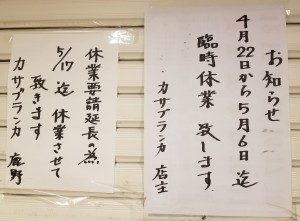 お知らせ
4月22日から5月6日迄
臨時休業 致します.
カサブランカ 店主
休業要請延長の為
5/17迄 休業させて
致きます
カサブランカ 鹿野